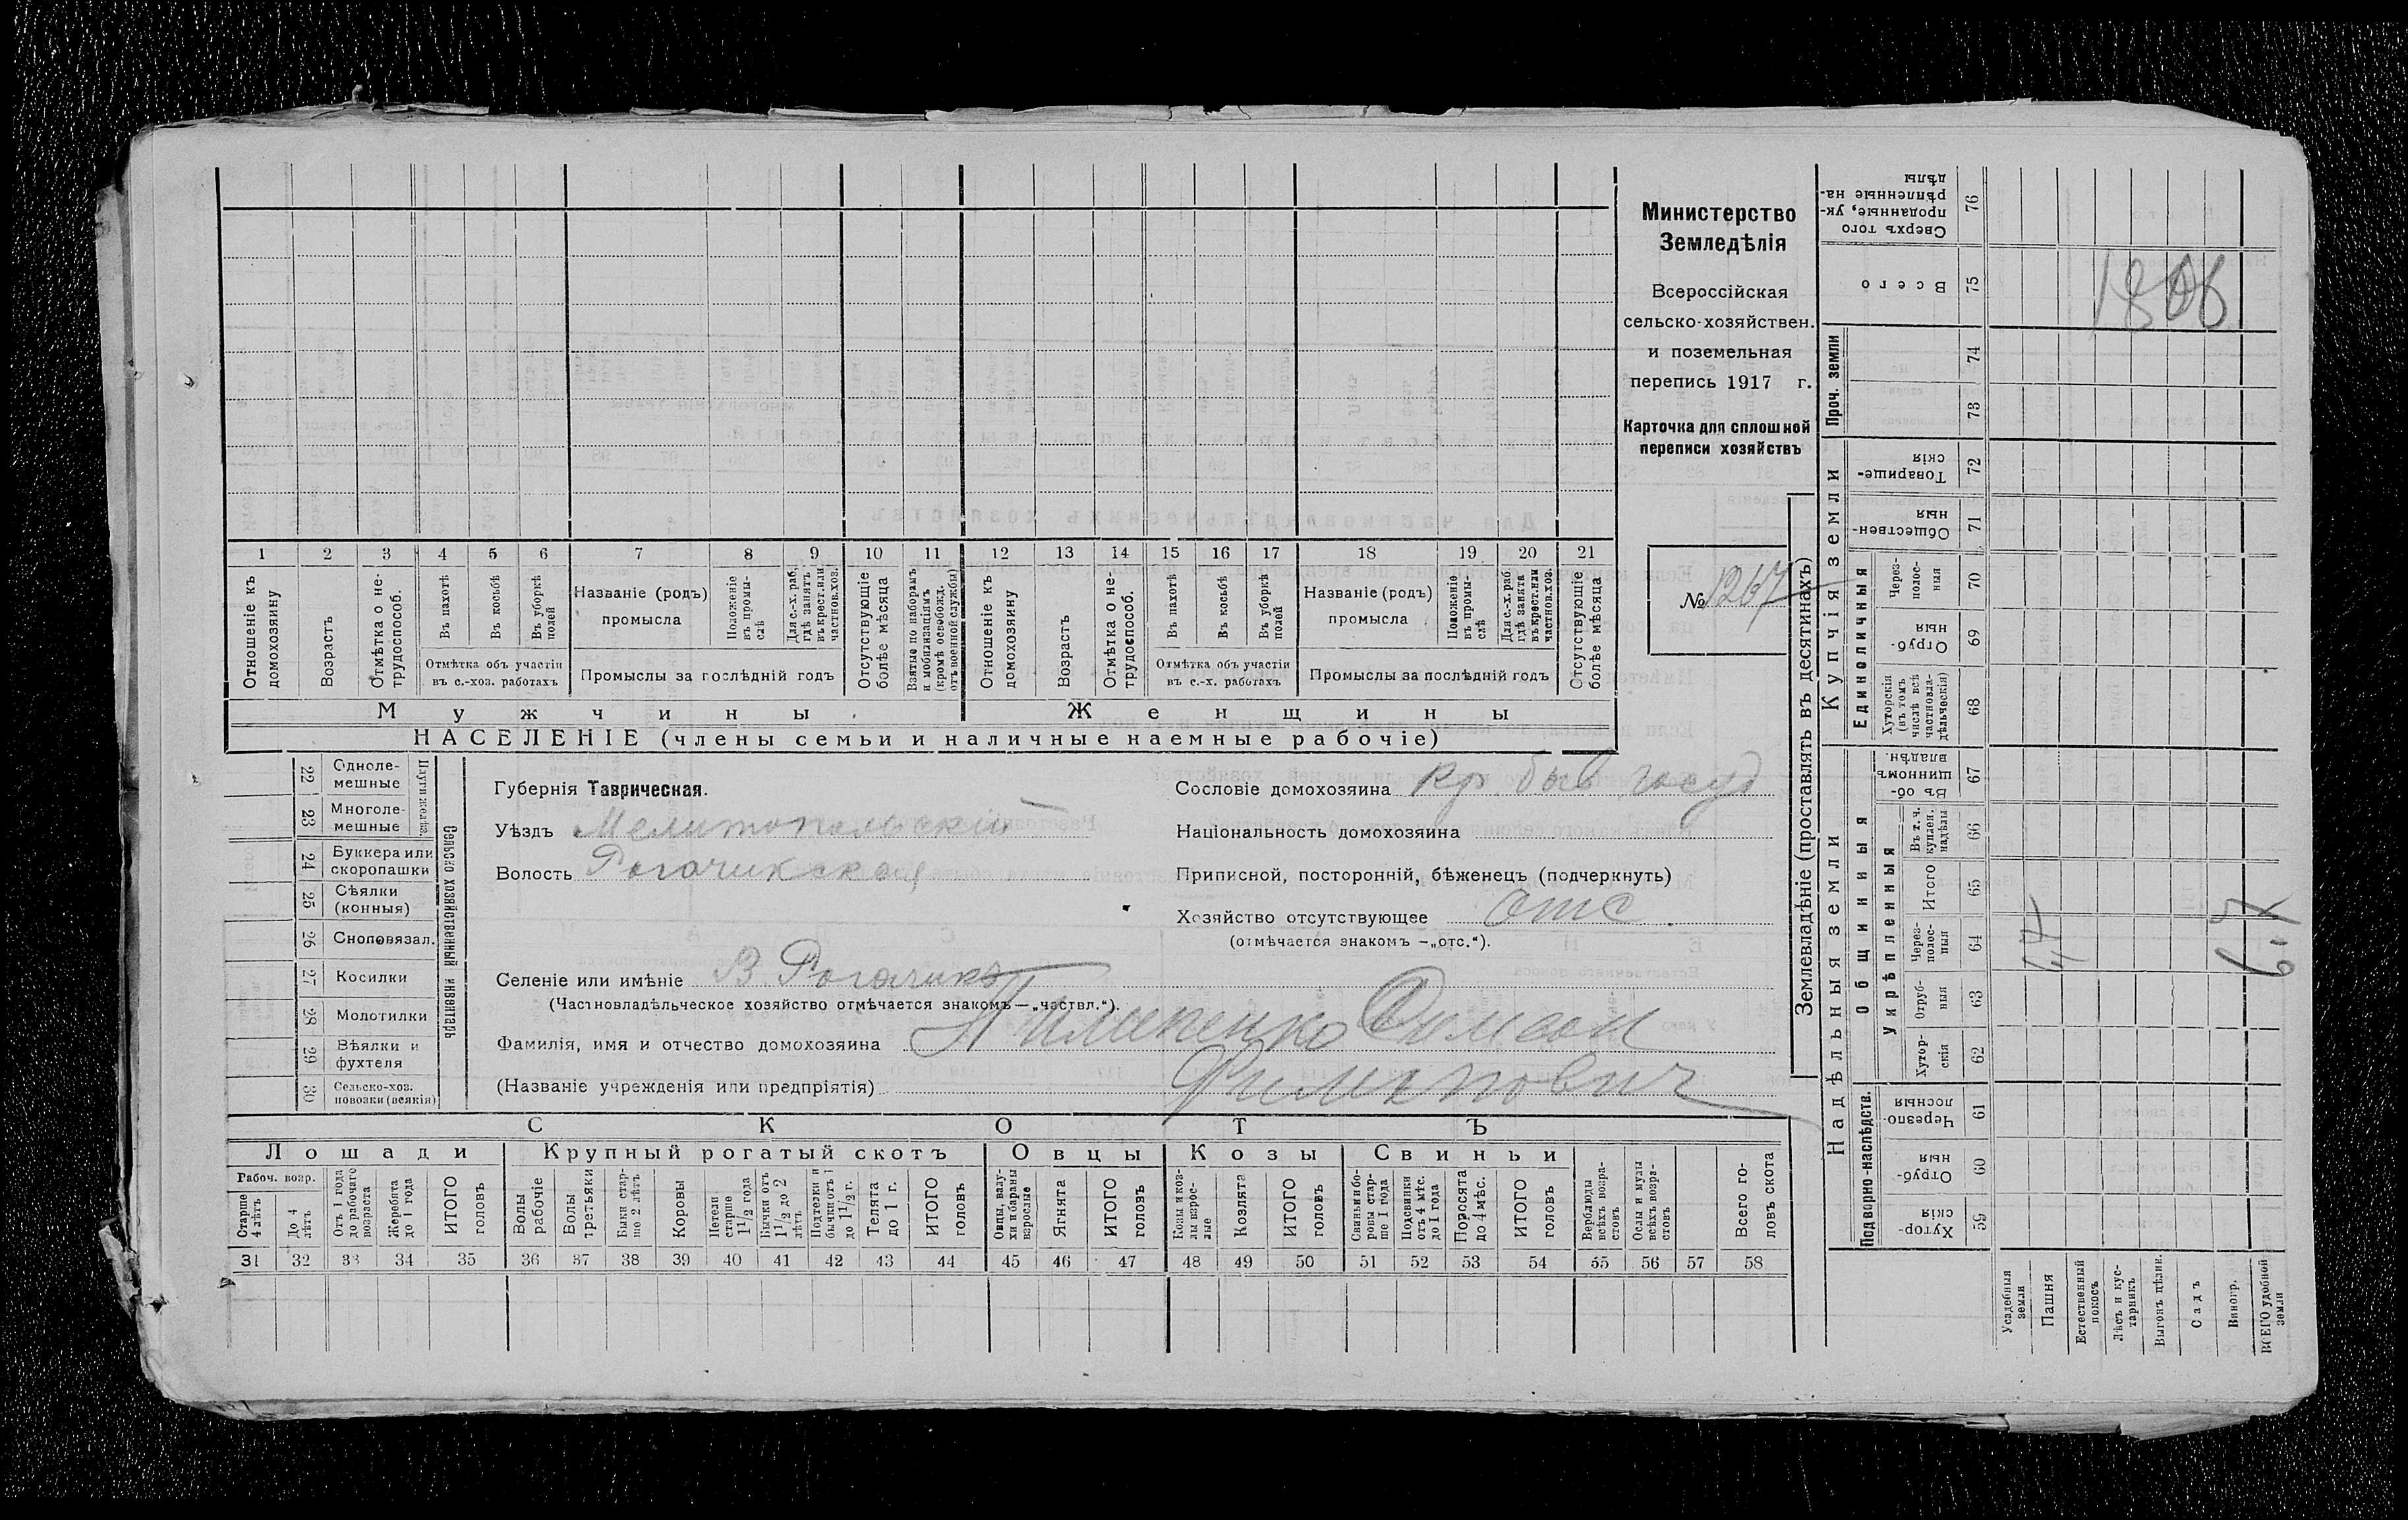 Министерство
Земледѣлія
Всероссійская
сельско-хозяйствен.
и поземельная
перепись 1917 г.
Карточка для сплошной
переписи хозяйствъ
№ 1267
1 2 3 4 5 6 7 8 9 10 11 12 13 14 15 16 17 18 19 20 21
Отношеніе къ домохозяину
Возрастъ
Отмѣтка о не-трудоспособ.
Въ пахотѣ
Въ косьбѣ
Въ уборкѣ полей
Отмѣтка объ участіи
въ с.-хоз. работахъ
Названіе (родъ)
промысла
Положеніе въ промы-слѣ
Для с.-х. раб, гдѣ занятъ въ крест. или частнов. хоз.
Промыслы за послѣдній годъ
Отсутствующіе болѣе мѣсяца
Взятые по наборамъ и мобилизаціямъ (кромѣ освобожд. отъ военной службы)
Отношеніе къ домохозяину
Возрастъ
Отмѣтка о не-трудоспособ.
Въ пахотѣ
Въ косьбѣ
Въ уборкѣ полей
Отмѣтка объ участіи
въ с.-х. работахъ
Названіе (родъ)
промысла
Положеніе въ промы-слѣ
Для с.-х. раб. гдѣ занята въ крест. или частнов. хоз.
Промыслы за послѣдній годъ
Отсутствующіе болѣе мѣсяца
Мужчины
Женщины
НАСЕЛЕНІЕ (члены семьи и наличные наемные рабочіе)
22 Одноле-мешные
23 Многоле-мешные
24 Буккера или скоропашки
25 Сѣялки (конныя)
26 Сноповязал.
27 Косилки
28 Молотилки
29 Вѣялки и фухтеля
30 Сельско-хоз. повозки (всякія)
Сельско хозяйственный инвентарь
Губернія Таврическая.
Уѣздъ Мелитопольскій
Волость Рогачикская
Селеніе или имѣніе В. Рогачикъ
(Частновладѣльческое хозяйство отмѣчается знакомъ—„частвл.“).
Сословіе домохозяина кр. быв госуд
Національность домохозяина
Приписной, посторонній, бѣженецъ (подчеркнуть)
Хозяйство отсутствующее отс
(отмѣчается знакомъ —„отс.“).
Фамилія, имя и отчество домохозяина
Филиппович
(Названіе учрежденія или предпріятія)
СКОТЪ
Лошади
Крупный рогатый скотъ
Овцы
Козы
Свиньи
Рабоч. возр.
Старше 4 лѣтъ
До 4 лѣтъ
Отъ 1 года до рабочаго возраста
Жеребята до 1 года
ИТОГО головъ
Волы рабочіе
Волы третьяки
Быки стар-ше 2 лѣтъ
Коровы
Нетели старше 1 1/2 года
Бычки отъ 1 1/2 до 2 лѣтъ
Подтелки и бычки отъ 1 до 1 1/2 г.
Телята до 1 г.
ИТОГО головъ
Овцы, валу-хи и бараны взрослые
Ягнята
ИТОГО головъ
Козы и коз-лы взрос-лые
Козлята
ИТОГО головъ
Свиньи и бо-ровы стар-ше 1 года
Подсвинки отъ 4 мѣс. до 1 года
Поросята до 4 мѣс.
ИТОГО головъ
Верблюды всѣхъ возра-стовъ
Ослы и мулы всѣхъ возра-стовъ
Всего го-ловъ скота
31 32 33 34 35 36 37 38 39 40 41 42 43 44 45 46 47 48 49 50 51 52 53 54 55 56 57 58
Землевладѣніе (проставлять въ десятинахъ)
Надѣльныя земли
Купчія земли
Проч. земли
Подворно-наслѣдств.
Общинныя
Укрѣпленныя
Единоличныя
59 Хутор-скія
60 Отруб-ныя
61 Черезпо-лосныя
62 Хутор-скія
63 Отруб-ныя
64 Через-полос-ныя
65 Итого
66 Въ т. ч. куплен. надѣлы
67 Въ об-щинномъ владѣн.
68 Хуторскія (въ томъ числѣ всѣ частновла-дѣльческія)
69 Отруб-ныя
70 Через-полос-ныя
71 Обществен-ныя
72 Товарище-скія
73
74
75 Всего
76 Сверхъ того проданные, ук-рѣпленные на-дѣлы
Усадебныя земли
Пашня
Естественный покосъ
Лѣсъ и кус-тарникъ
Выгонъ цѣлин.
Садъ
Виногр.
ВСЕГО удобной земли